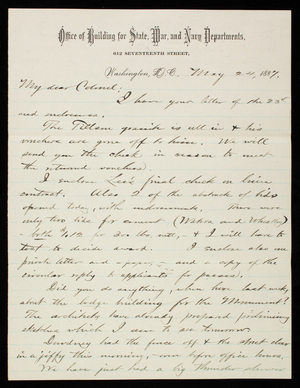 Office of Building for State, War, and Navy Departments.
612 SEVENTEENTH STREET,
Washington, D.C. May 24, 1887.
My dear Colonel:
I have your letter of the 23d
and enclosures.
The Tillson granite is all in & his
vouchers are gone off to him. We will
send you the check in season to meet
the returned vouchers.
I enclose Lee's final check on
contract. Also 2 of the abstracts of bids
opened today, with endorsements. There were
only two bids for cement
both for lbs. net, & I will have to
test to decide award. I enclose also an
private letter and a copy of the
circular reply to applicants for passes.
Did you do anything, when here last week,
about the lodge building for the Monument?
The architects have already prepared preliminary
sketches which I am to see tomorrow.
had the fence off & the street clear
in a jiffy this morning, even before office hours.
We have just had a big thunder shower